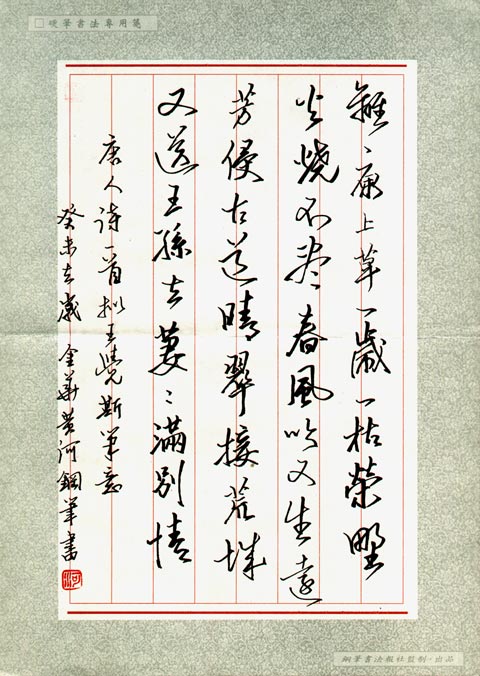 硬筆書法專用箋
離〻原上草一歲一枯榮野
火燒不盡春風吹又生遠
芳侵古道晴翠接荒城
又送王孫去萋〻滿別情
唐人诗一首拟王覺斯筆意
癸未之歲 金華黄河鋼筆書
鋼筆書法報社監制·出品